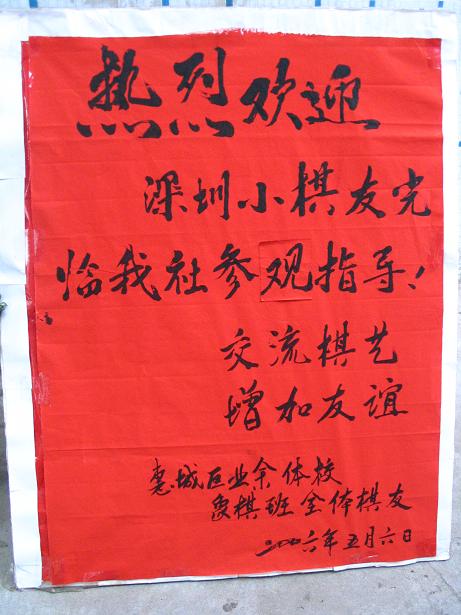 热烈欢迎
深圳小棋友光
临我社参观指导!
交流棋艺
增加友谊
惠城区业余体校
象棋班全体棋友
二〇〇六年五月六日